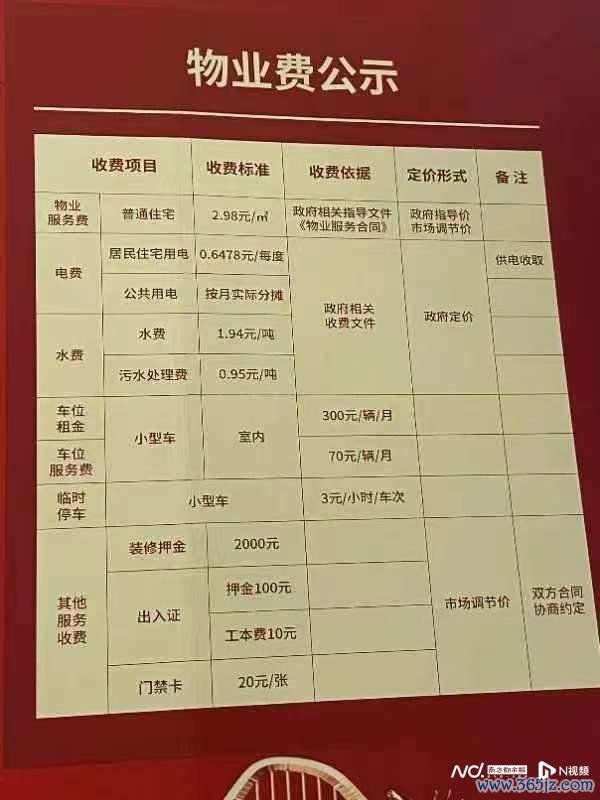 物业费公示
收费项目 收费标准 收费依据 定价形式 备注
物业
服务费
普通住宅 2.98元/㎡
政府相关指导文件
《物业服务合同》
政府指导价
市场调节价
电费
居民住宅用电 0.6478元/每度
公共用电 按月实际分摊
水费
水费 1.94元/吨
污水处理费 0.95元/吨
政府相关
收费文件
政府定价
供电收取
车位
租金
车位
服务费
小型车 室内
300元/辆/月
70元/辆/月
临时
停车
小型车 3元/小时/车次
其他
服务
收费
装修押金 2000元
出入证
押金100元
工本费10元
门禁卡 20元/张
市场调节价
双方合同
协商约定
南方都市报 N视频
www.365jz.com